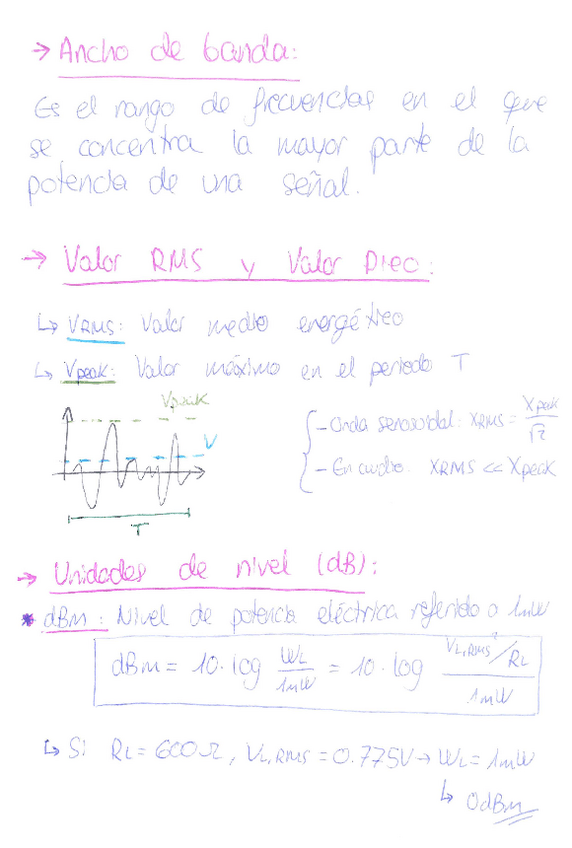 → Ancho de banda:
Es el rango de frecuencias en el que
se concentra la mayor parte de la
potencia de una señal.
→ Valor RMS y Valor Pico:
↳ VRMS: Valor medio energético
↳ Vpeak: Valor máximo en el periodo T
Vpeak
V
T
- Onda senosoidal: XRMS = Xpeak/√2
- En audio: XRMS << Xpeak
→ Unidades de nivel (dB):
* dBm: Nivel de potencia eléctrica referido a 1mW
dBm = 10·log WL/1mW = 10·log (VL,RMS²/RL)/1mW
↳ Si RL = 600Ω, VL,RMS = 0.775V → WL = 1mW
↳ 0dBm